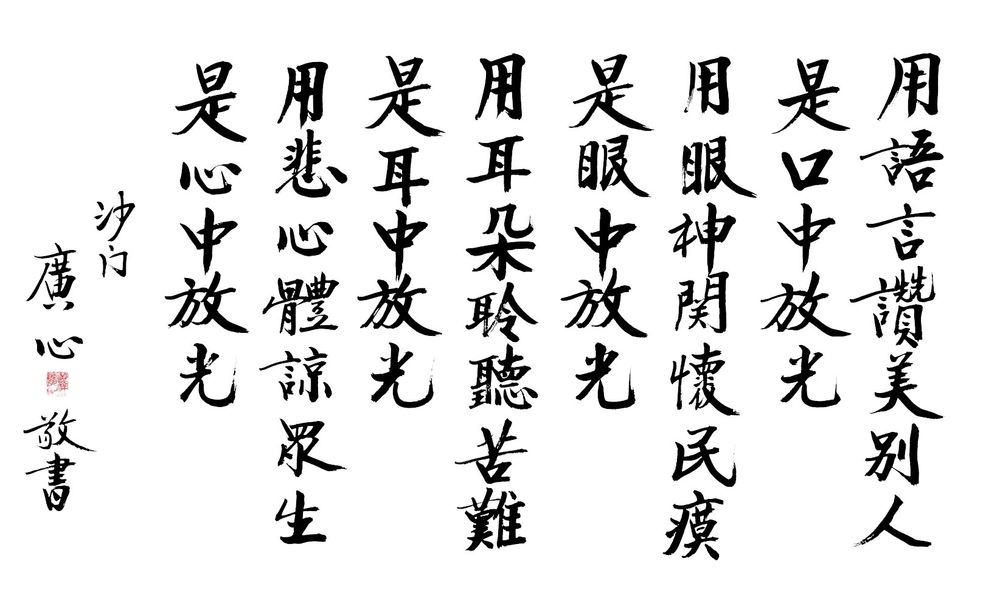 用語言讚美別人
是口中放光
用眼神関懷民瘼
是眼中放光
用耳朵聆聽苦難
是耳中放光
用悲心體諒眾生
是心中放光
沙门
廣心
敬書